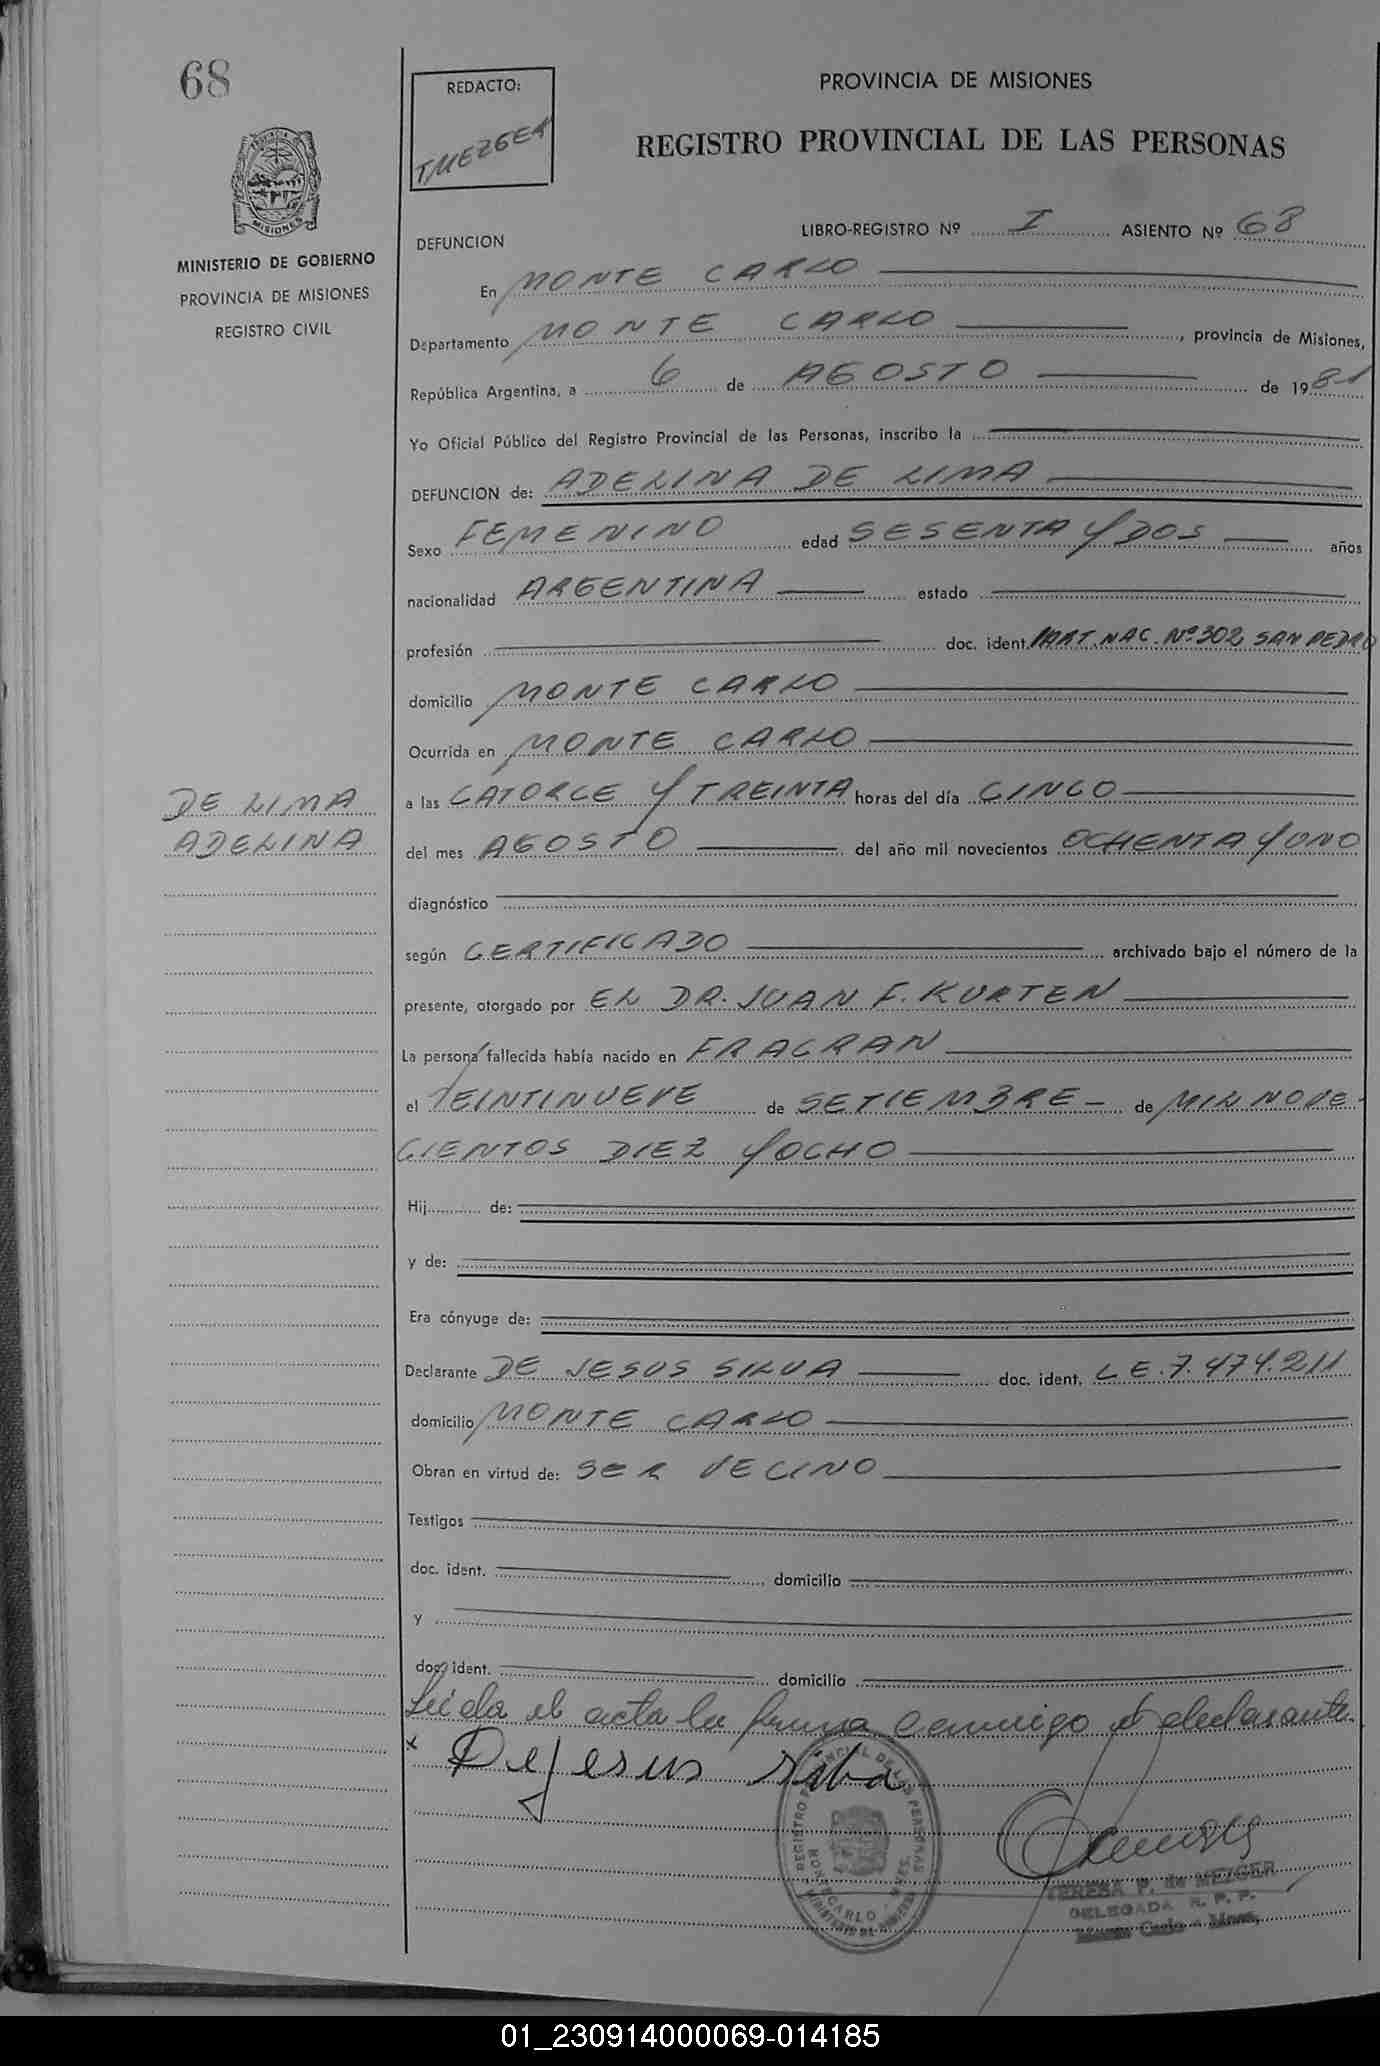 68
REDACTO:
TMEZGER
PROVINCIA DE MISIONES
REGISTRO PROVINCIAL DE LAS PERSONAS
PROVINCIA
MISIONES
MINISTERIO DE GOBIERNO
PROVINCIA DE MISIONES
REGISTRO CIVIL
DEFUNCION
LIBRO-REGISTRO Nº I ASIENTO Nº 68
En MONTE CARLO
Departamento MONTE CARLO, provincia de Misiones,
República Argentina, a 6 de AGOSTO de 1981
Yo Oficial Público del Registro Provincial de las Personas, inscribo la
DEFUNCION de: ADELINA DE LIMA
Sexo FEMENINO edad SESENTA Y DOS años
nacionalidad ARGENTINA estado
profesión doc. ident. PART. NAC. Nº 302 SAN PEDRO
domicilio MONTE CARLO
Ocurrida en MONTE CARLO
DE LIMA
ADELINA
a las CATORCE Y TREINTA horas del día CINCO
del mes AGOSTO del año mil novecientos OCHENTA Y UNO
diagnóstico
según CERTIFICADO archivado bajo el número de la
presente, otorgado por EL DR. JUAN F. KURTEN
La persona fallecida había nacido en FRACRAN
el VEINTINUEVE de SETIEMBRE - de MIL NOVE-
CIENTOS DIEZ Y OCHO
Hij de:
y de:
Era cónyuge de:
Declarante DE JESUS SILVA doc. ident. L E. 7.474.211
domicilio MONTE CARLO
Obran en virtud de: SER VECINO
Testigos
doc. ident. domicilio
y
doc. ident. domicilio
Leida el acta la firma conmigo el declarante.
x De Jesus silva
REGISTRO PROVINCIAL DE LAS PERSONAS
MONTECARLO
TERESA P. de MEZGER
DELEGADA R. P. P.
Monte Carlo - Mnes.
01_230914000069-014185